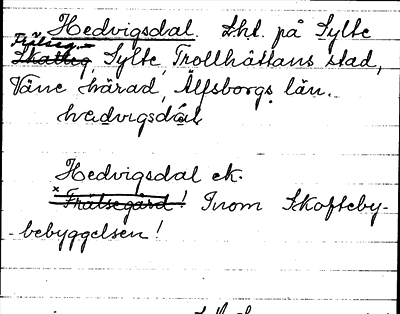 Hedvigsdal. Lht. på Sylte
Frälseg.
Skatteg, Sylte, Trollhättans stad,
Väne härad, Älfsborgs län.
hedvigsdal
Hedvigsdal ek.
× Frälsegård! Inom Skofteby-
-bebyggelsen!